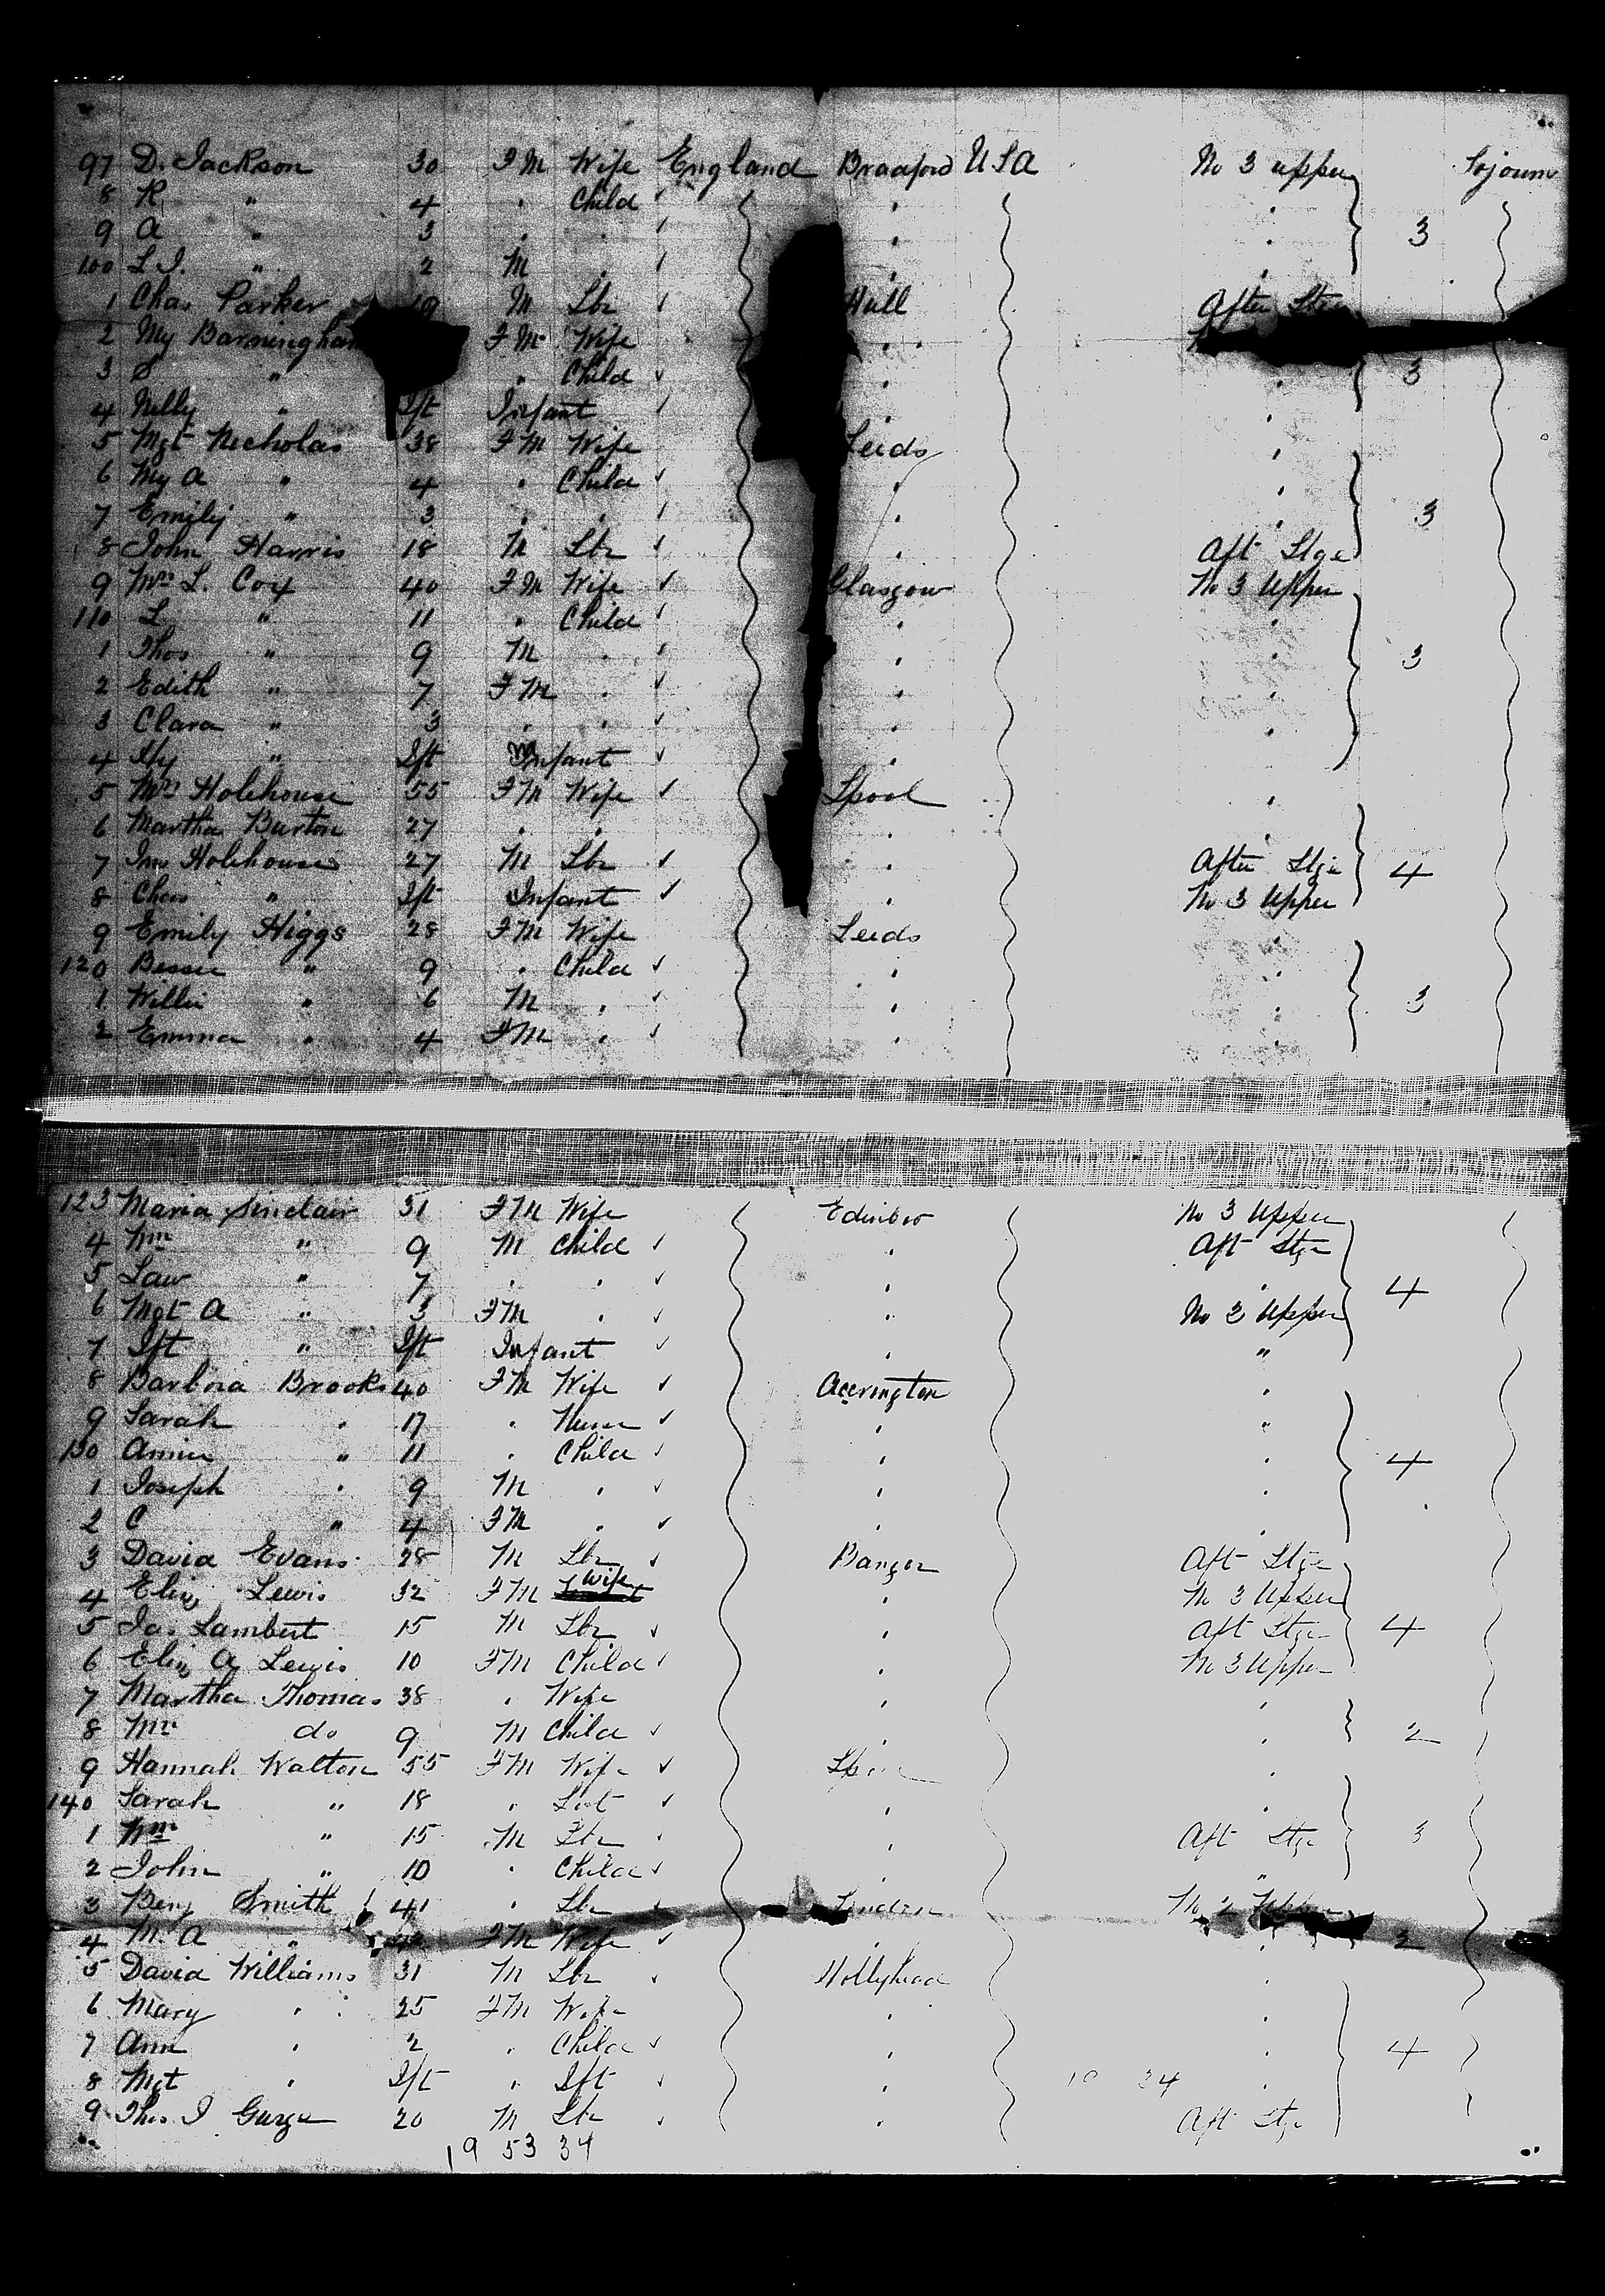 97 D. Jackson 30 FM Wife England Bradford USA No 3 upper Sojourn
8 R " 4 " Child "
9 A " 3 " " " 3
100 L I. " 2 M " "
1 Chas Parker M Lbr Hull After Stge
2 My Barningham FM Wife "
3 S " " Child " 3
4 Nelly " Ift Infant "
5 Mgt Nicholas 38 FM Wife Leeds "
6 My A " 4 " Child "
7 Emily " 3 " " " 3
8 John Harris 18 M Lbr " Aft Stge
9 Mrs L. Cox 40 FM Wife Glasgow No 3 Upper
110 L " 11 " Child " "
1 Thos " 9 M " " " 3
2 Edith " 7 FM " " "
3 Clara " 3 " " " "
4 " Ift Infant "
5 Mrs Holehouse 55 FM Wife Lpool "
6 Martha Burton 27 " " " "
7 Jno Holehouse 27 M Lbr " After Stge 4
8 Chas " Ift Infant " No 3 Upper
9 Emily Higgs 28 FM Wife Leeds "
120 Bessie " 9 " Child " "
1 Willie " 6 M " " " 3
2 Emma " 4 FM " " "
123 Maria Sinclair 31 FM Wife Edinboro No 3 Upper
4 Wm " 9 M Child " Aft Stge
5 Law " 7 " " " " 4
6 Mgt A " 3 FM " " No 3 Upper
7 Ift " Ift Infant " "
8 Barbora Brooks 40 FM Wife Accrington "
9 Sarah " 17 " Nurse " "
130 Annie " 11 " Child " " 4
1 Joseph " 9 M " " "
2 C " 4 FM " " "
3 David Evans 28 M Lbr Bangor Aft Stge
4 Eliz Lewis 32 FM Wife " No 3 Upper
5 Jas Lambert 15 M Lbr " Aft Stge 4
6 Eliz A Lewis 10 FM Child " No 3 Upper
7 Martha Thomas 38 " Wife " "
8 Wm do 9 M Child " " 2
9 Hannah Walton 55 FM Wife "
140 Sarah " 18 " " "
1 Wm " 15 M Lbr " Aft Stge 3
2 John " 10 " Child " "
3 Benj Smith 41 " Lbr London Upper
4 M. A " FM Wife " " 2
5 David Williams 31 M Lbr Hollyhead "
6 Mary " 25 FM Wife " "
7 Ann " 2 " Child " " 4
8 Mgt " Ift " Ift " 34 "
9 Thos J 20 M Lbr " Aft Stge
19 53 34